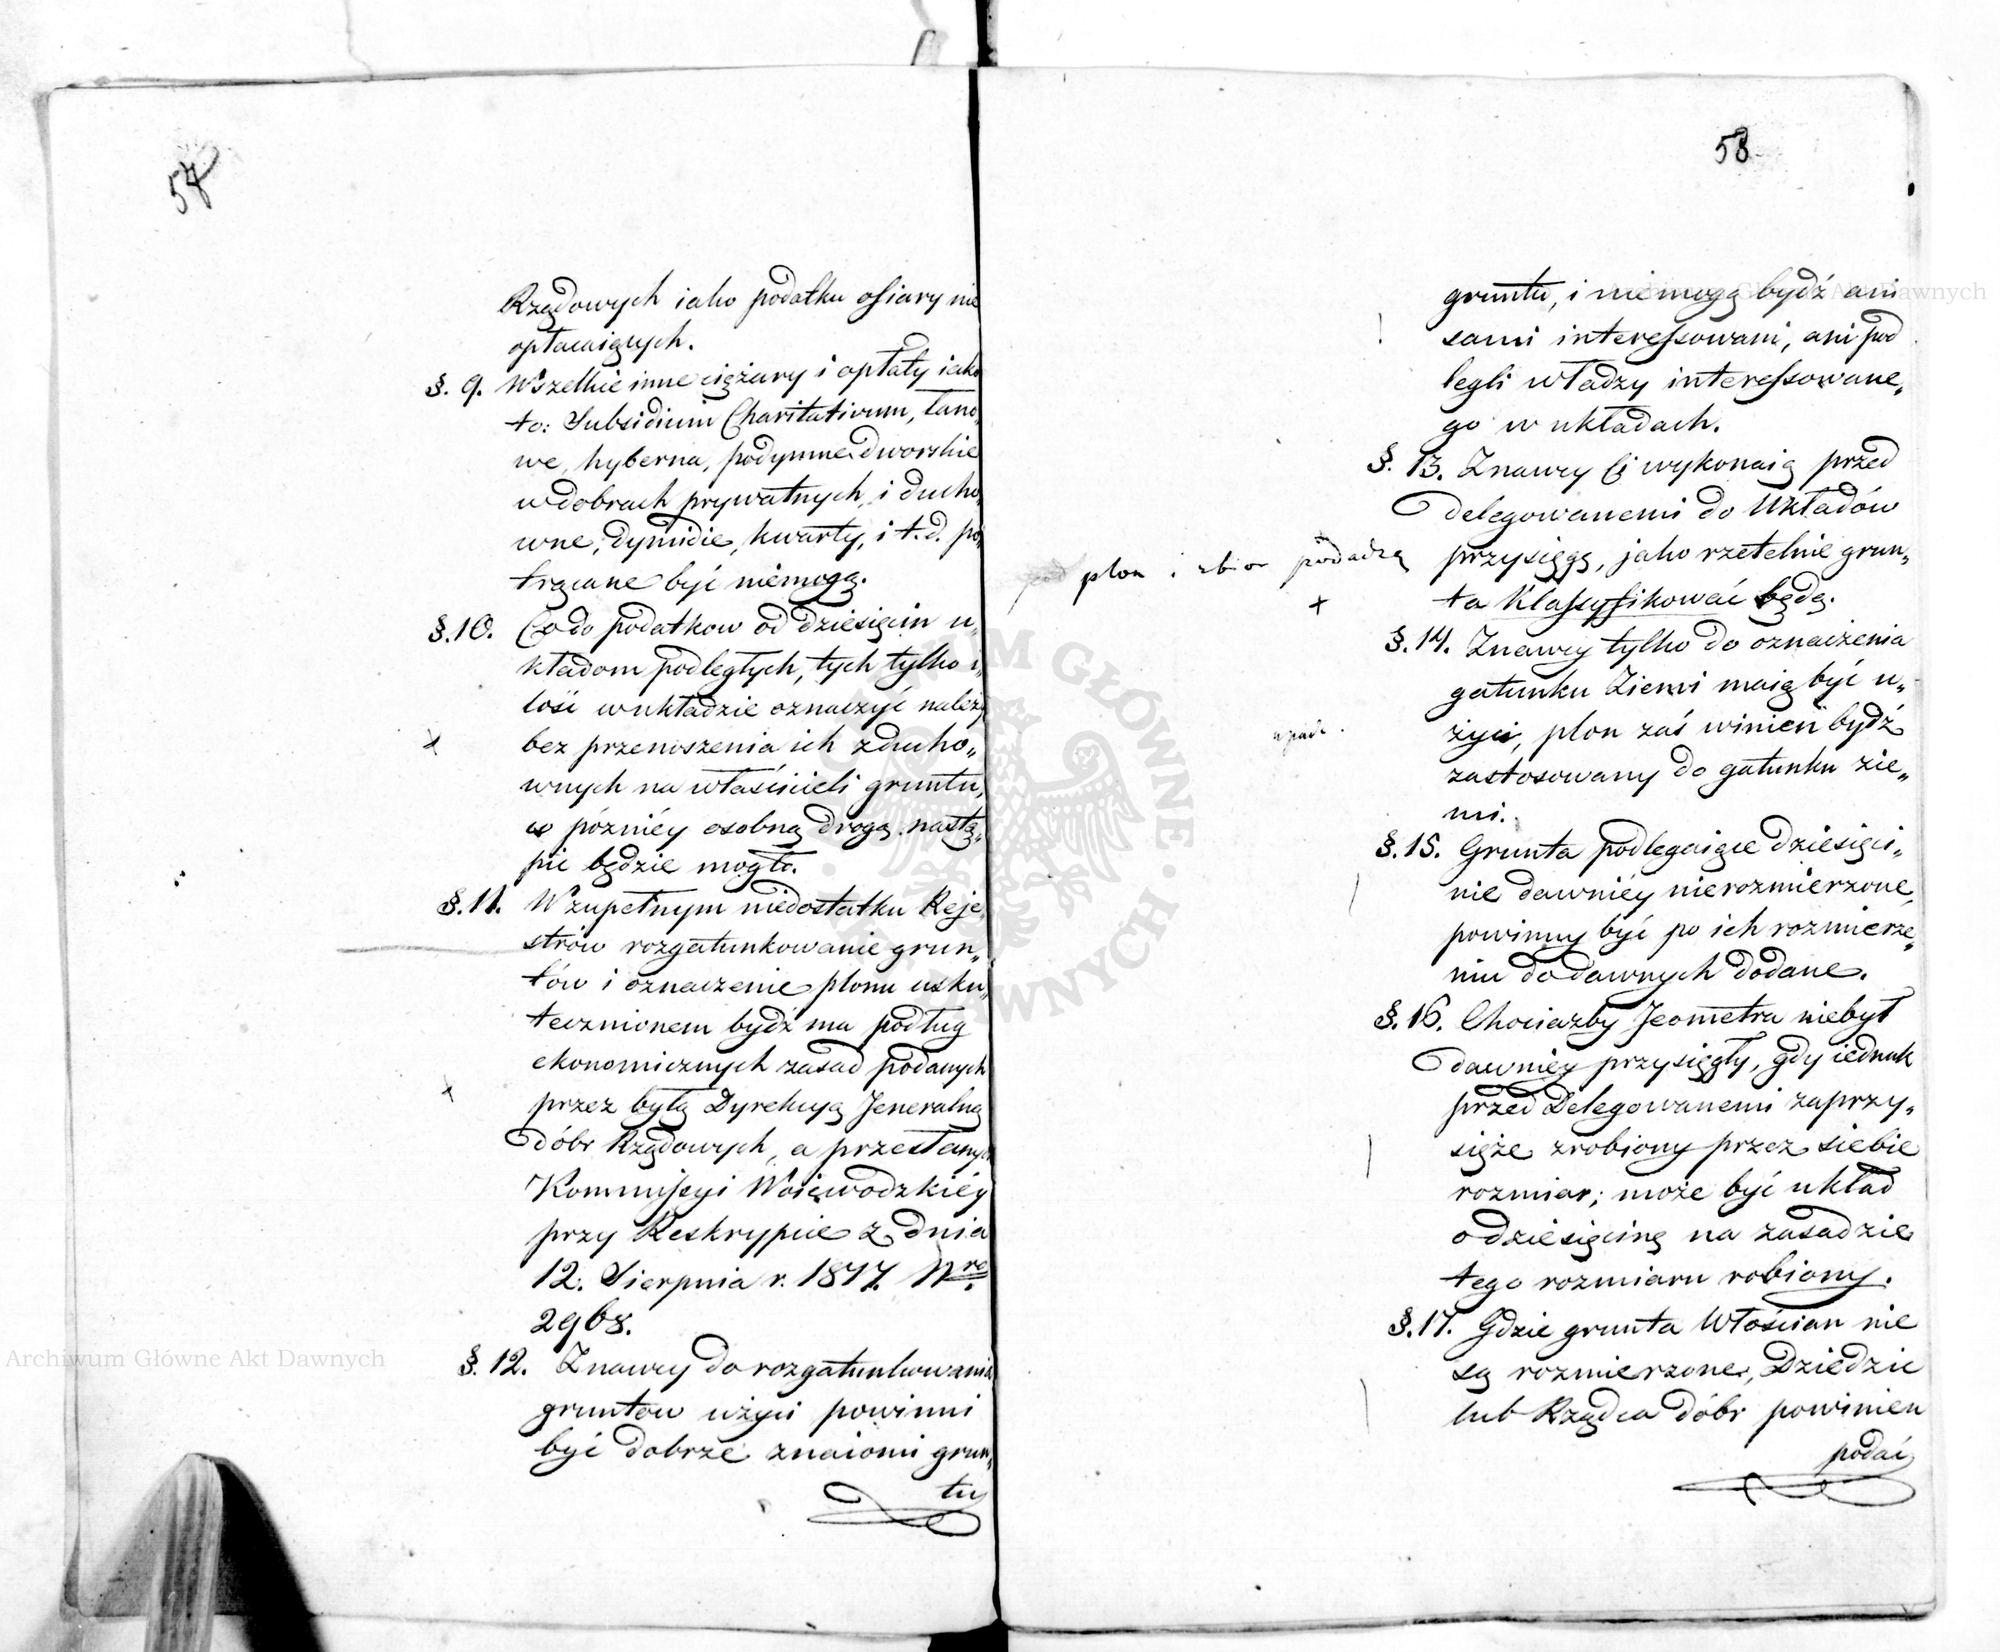 57
Rządowych iako podatku ofiary nie
opłacaiących.
§. 9. Wszelkie inne ciężary i opłaty iako
to: Subsidium Charitativum, łano„
we, hyberna, podymne dworskie
w dobrach prywatnych, i ducho„
wne, dymidie, kwarty, i t. d. po„
trącane być niemogą.
§. 10. Co do podatkow od dziesięcin u„
kładom podległych, tych tylko i„
lość w układzie oznaczyć należy
bez przenoszenia ich z ducho„
wnych na właścicieli gruntu,
co późniéy osobną drogą nastą„
pić będzie mogło.
§. 11. W zupełnym niedostatku Reje„
strów rozgatunkowanie grun„
tów i oznaczenie plonu usku„
tecznionem bydź ma podług
ekonomicznych zasad podanych
przez byłą Dyrekcyą Jeneralną
dóbr Rządowych, a przesłanych
Kommissyi Woiewodzkiéy
przy Reskrypcie z dnia
12. Sierpnia r. 1817. Nro
2968.
§. 12. Znawcy do rozgatunkowania
gruntow użyci powinni
być dobrze znaiomi grun„
tu
58
gruntu, i nie mogą bydź ani
sami interessowani, ani pod
legli władzy interessowane„
go w układach.
§. 13. Znawcy Ci wykonaią przed
delegowanemi do Układów
przysięgę, jako rzetelnie grun„
ta Klassyfikować będą.
plon i zbior podadzą
+
§. 14. Znawcy tylko do oznaczenia
gatunku Ziemi maią być u„
życi, plon zaś winien bydź
zastosowany do gatunku zie„
mi.
§. 15. Grunta podlegaiące dziesięci„
nie dawniéy nierozmierzone,
powinny być po ich rozmierze„
niu do dawnych dodane.
§. 16. Chociażby Jeometra niebył
dawniéy przysięgły, gdy iednak
przed Delegowanemi zaprzy„
sięże zrobiony przez siebie
rozmiar; może być układ
o dziesięcinę na zasadzie
tego rozmiaru robiony.
§. 17. Gdzie grunta Włościan nie
są rozmierzone, Dziedzic
lub Rządca dóbr powinien
podać
Archiwum Główne Akt Dawnych
Archiwum Główne Akt Dawnych
ARCHIWUM GŁÓWNE AKT DAWNYCH